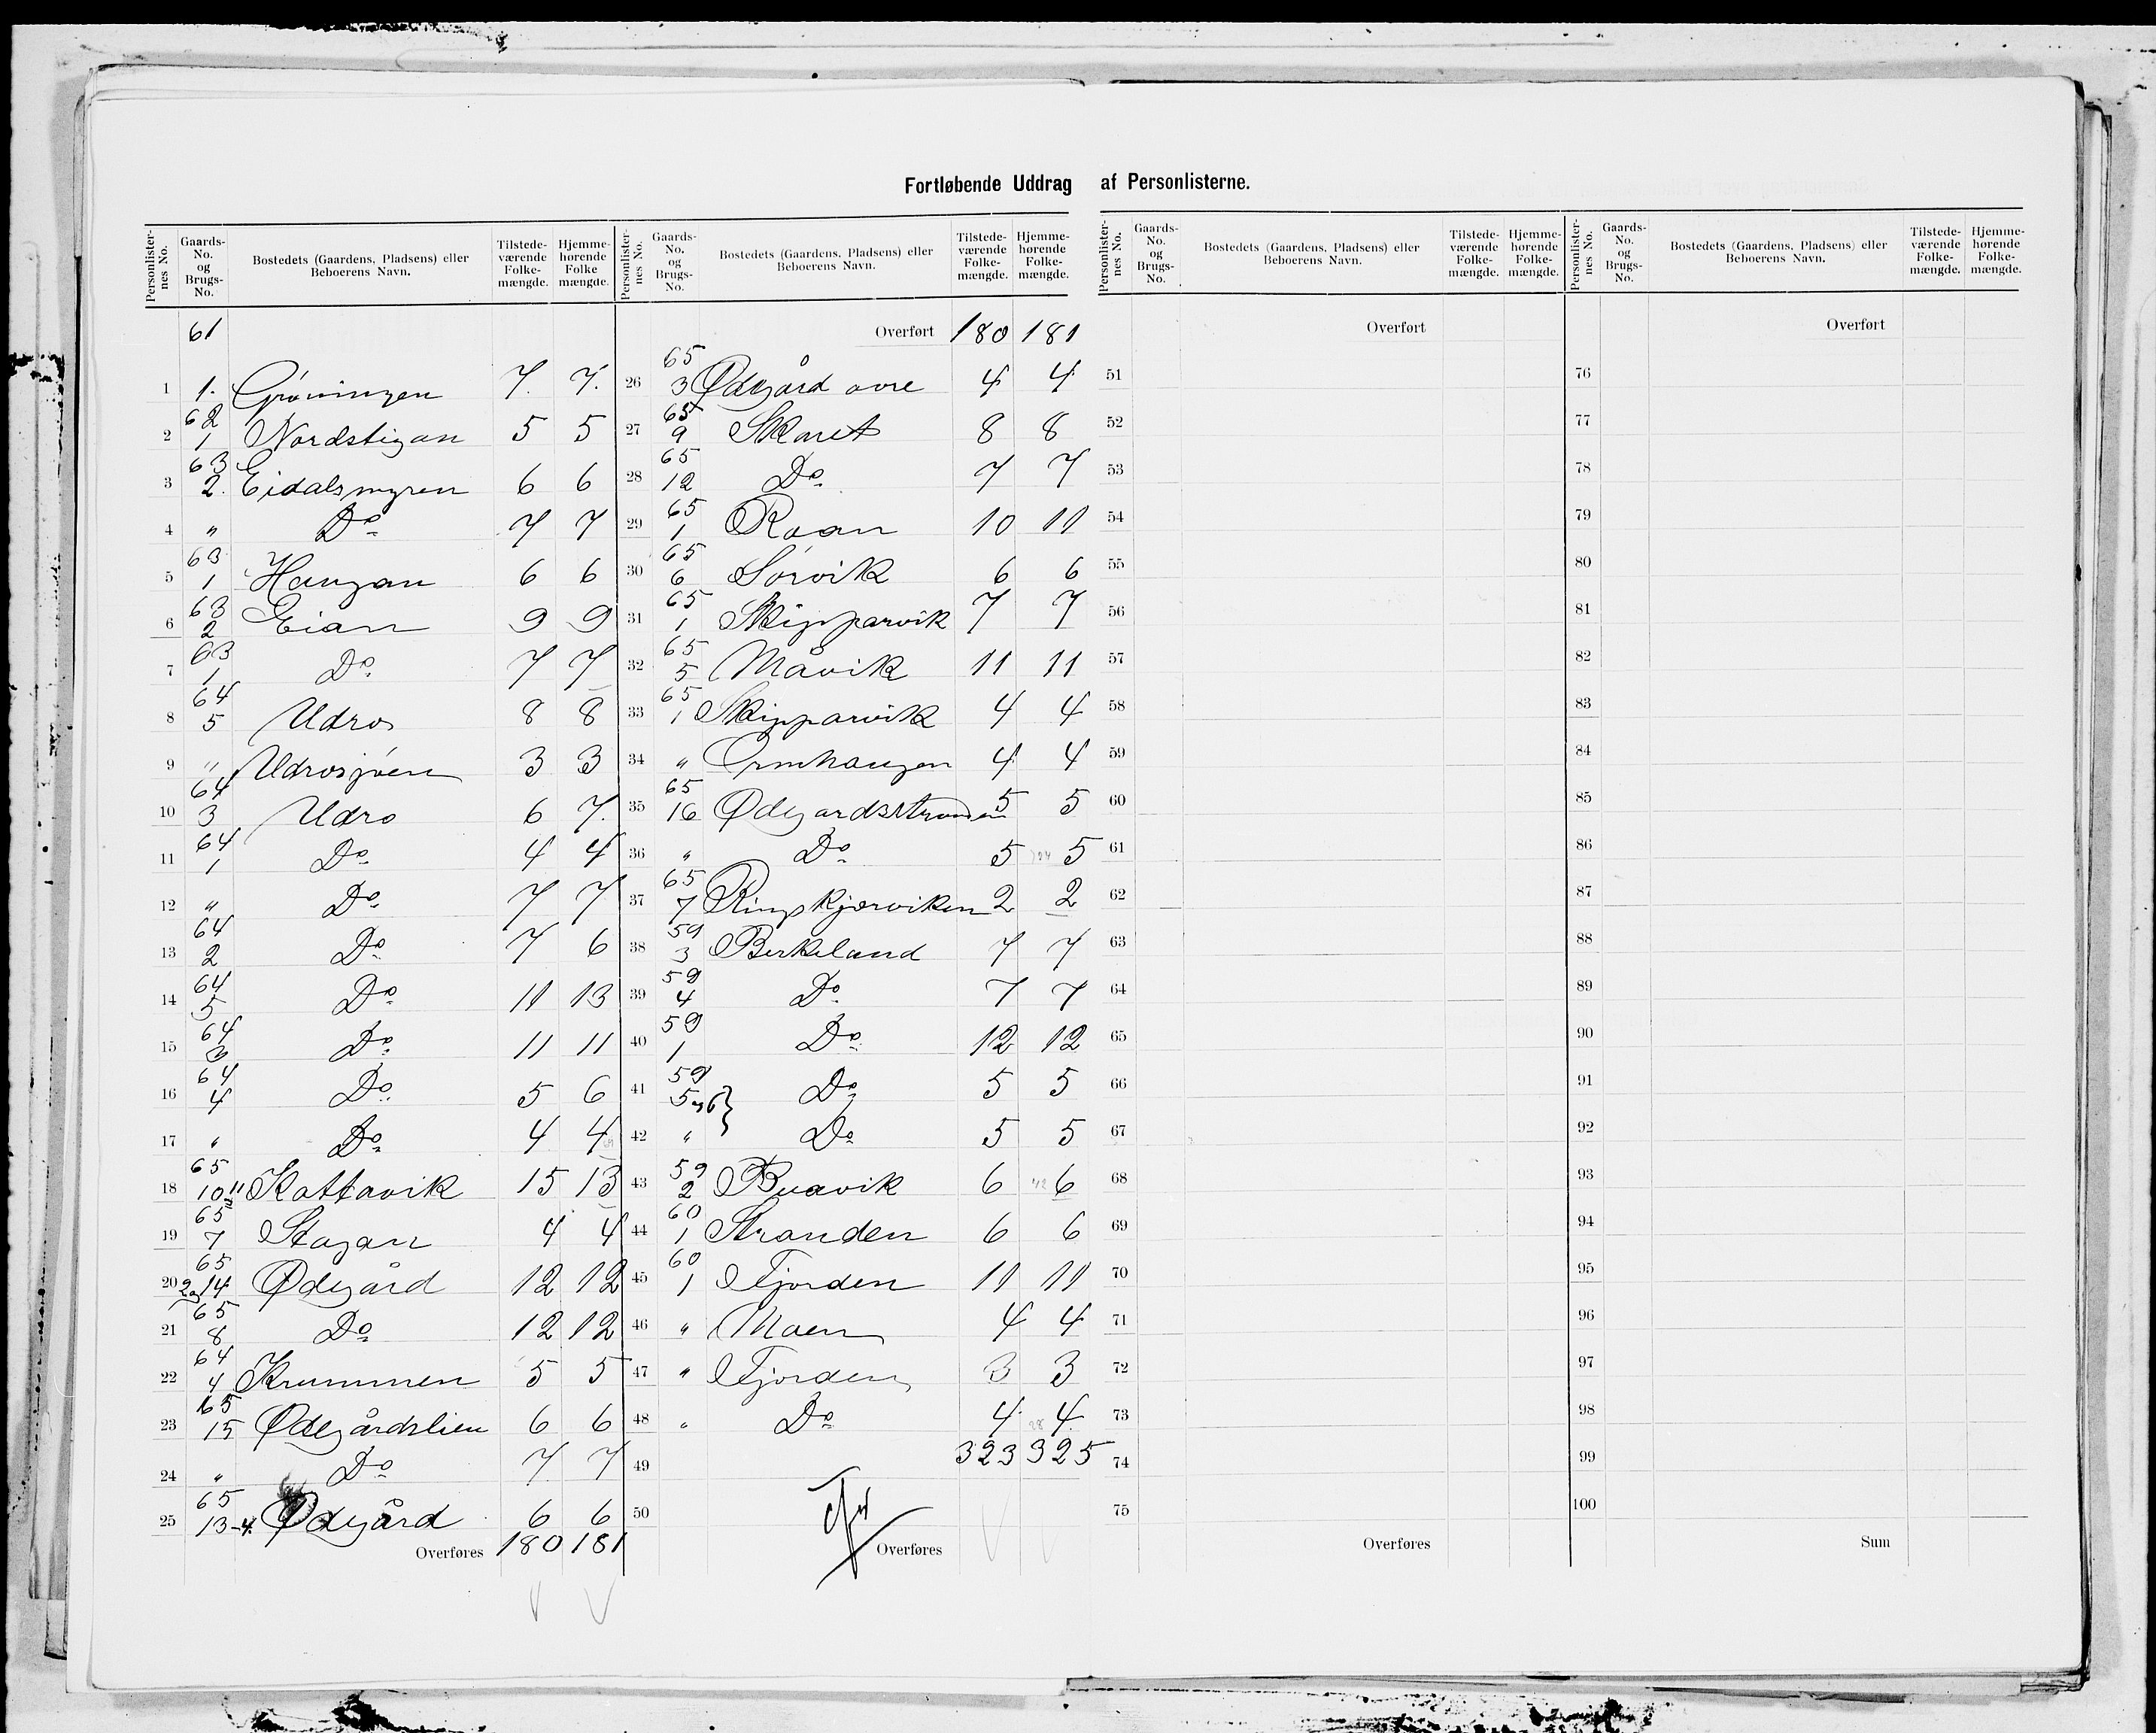 Fortløbende Uddrag af Personlisterne.
Personlister-nes No. | Gaards-No. og Brugs-No. | Bostedets (Gaardens, Pladsens) eller Beboerens Navn. | Tilstede-værende Folke-mængde. | Hjemme-hørende Folke mængde.
61
1 1. Gröningen 7. 7.
2 62 1 Nordstigan 5 5
3 63 2. Eidalsmyren 6 6
4 " Do 7 7
5 63 1 Haugan 6 6
6 63 2 Eian 9 9
7 63 1 Do 7 7
8 64 5 Udro 8 8
9 " Udrosjöen 3 3
10 64 3 Udro 6 7.
11 64 1 Do 4 4
12 " Do 7 7
13 64 2 Do 7 6
14 64 5 Do 11 13
15 64 3 Do 11 11
16 64 4 Do 5 6
17 " Do 4 4
18 65 10 11 Kattavik 15 13
19 65 7 Stagan 4 4
20 65 2 og 14 Ødegård 12 12
21 65 8 Do 12 12
22 64 4 Krummen 5 5
23 65 15 Ødegårdslien 6 6
24 " Do 7 7
25 65 13-4. Ødegård 6 6
Overføres 180 181
Personlister-nes No. | Gaards-No. og Brugs-No. | Bostedets (Gaardens, Pladsens) eller Beboerens Navn. | Tilstede-værende Folke-mængde. | Hjemme-hørende Folke-mængde.
Overført 180 181
26 65 3 Ødegård övre 4 4
27 65 9 Skaret 8 8
28 65 12 Do 7 7
29 65 1 Roan 10 11
30 65 6 Sörvik 6 6
31 65 1 Skipparvik 7 7
32 65 5 Måvik 11 11
33 65 1 Skipparvik 4 4
34 " Ormhaugen 4 4
35 65 16 Ødegardsstranden 5 5
36 " Do 5 5
37 65 7 Ringkjörviken 2 2
38 59 3 Berkeland 7 7
39 59 4 Do 7 7
40 59 1 Do 12 12
41 59 5 og 6 } Do 5 5
42 " Do 5 5
43 59 2 Buavik 6 42 6
44 60 1 Stranden 6 6
45 60 1 Fjorden 11 11
46 " Moen 4 4
47 " Fjorden 3 3
48 " Do 4 28 4
49 323 325
50
Overføres
Personlister-nes No. | Gaards-No. og Brugs-No. | Bostedets (Gaardens, Pladsens) eller Beboerens Navn. | Tilstede-værende Folke-mængde. | Hjemme-hørende Folke-mængde.
Overført
51
52
53
54
55
56
57
58
59
60
61
62
63
64
65
66
67
68
69
70
71
72
73
74
75
Overføres
Personlister-nes No. | Gaards-No. og Brugs-No. | Bostedets (Gaardens, Pladsens) eller Beboerens Navn. | Tilstede-værende Folke-mængde. | Hjemme-hørende Folke-mængde.
Overført
76
77
78
79
80
81
82
83
84
85
86
87
88
89
90
91
92
93
94
95
96
97
98
99
100
Sum